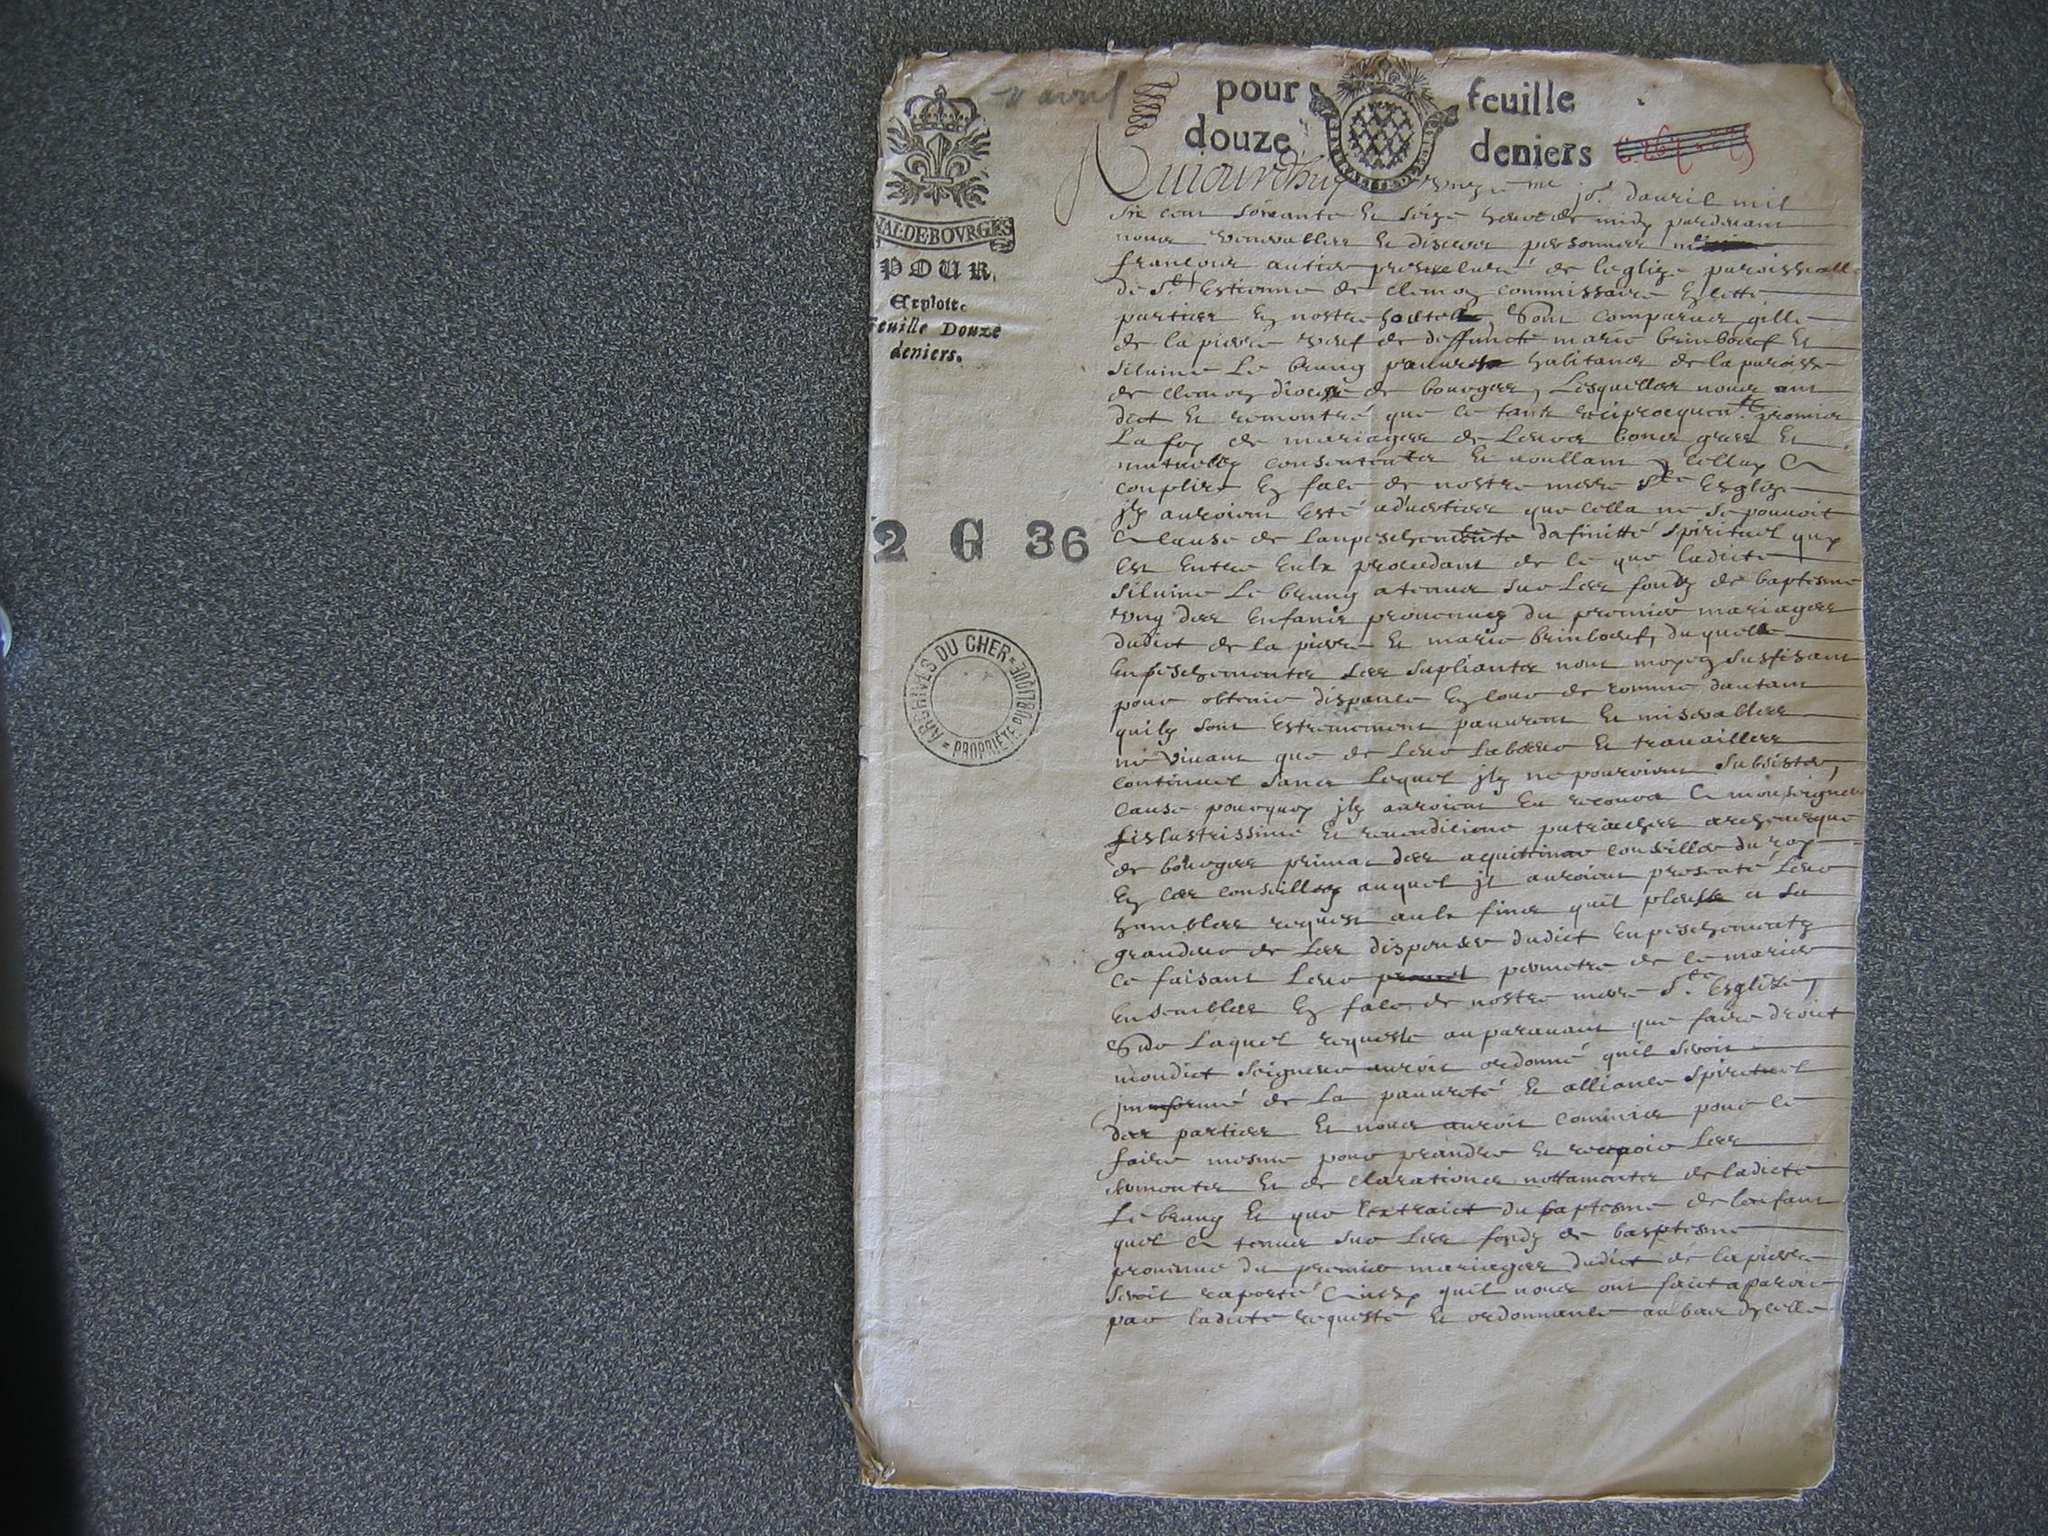 avril
pour feuille
douze deniers
VAL·DE·BOVRGES
POUR
Exploit.
feuille Douze
deniers.
2 G 36
ARCHIVES DU CHER
PROPRIÉTÉ PUBLIQUE
Auiourdhuy unziéme jor. dauril mil
six cent soixante et seize heure de midy pardeuant
nous venerables et discres personnes
francois autier prestre curé de leglize paroissiall
de St. Estienne de clemon commissaire en cette
parties en nostre hostel Sont comparus gille
de la pierre veuf de deffuncte marie brinboeuf et
siluine Le brung pauures habitans de la paroisse
de clemon diocese de bourges, Lesquelles nous ont
dict et remontré que ce tant reciproquemt. promis
La foy de mariages de Leurs bons gres et
mutuelz consentente et voullant icelluy a
conplire en face de nostre mere Ste Esglize
jlz auroient esté aduerties que cella ne se pouuoit
a cause de lanpeschemente dafinitté spirituel quy
est entre eulx procedant de ce que ladicte
siluine Le brung a tenus sur Les fondz de baptesme
vng des enfans prouenus du premier mariages
dudict de la pierre et marie brinboeuf, duquel
enpeschementes Les supliantes nont moyen sufisant
pour obtenir dispance en cour de romme dautant
quilz sont estremement pauures et miserables
ne viuant que de Leur labeur et trauailles
continuel sans lequel jlz ne pouroient subsister,
cause pourquoy jlz auroient eu recours a monseigneur
jllustrissime et reuerdicime patriaches archeuesque
de bourges primat des aquittines conseiller du roy
en ces conseillz auquel jl auroient presenté Leur
humbles requeste aulx fins quil pleusse a sa
grandeur de Les dispenser dudict enpeschementz
ce faisant Leur permetre de ce marier
ensembles en face de nostre mere Ste Esglize,
Sur Laquel requeste auparauant que faire droict
mondict seigneur auroit ordonné quil seroit
jnformé de La pauureté et alliance spirituel
des parties et nous auroit commis pour ce
faire mesme pour prandre et recepoir Les
sermentes et declarations nottamentes de ladicte
Le brung et que lextraict du baptesme de lenfant
quel a tenus sur Les fondz de baptesme
prouenue du premier mariages dudict de la pierre
seroit raporté Ainsy quil nous ont faict aparoir
par ladicte requeste et ordonnance au bas dycelle